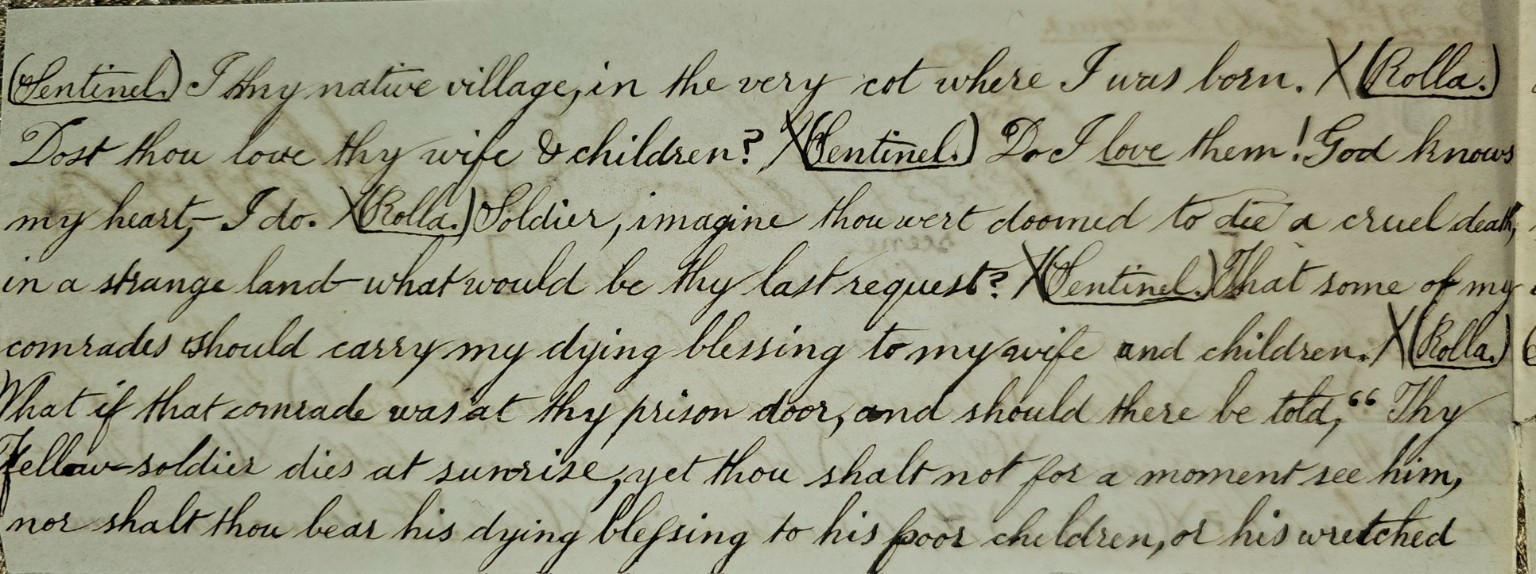 (Sentinel.) I thy native village, in the very cot where I was born. X (Rolla.)
Dost thou love thy wife & children? X (Sentinel.) Do I love them! God knows
my heart,– I do. X (Rolla.) Soldier, imagine thou wert doomed to die a cruel death,
in a strange land–what would be thy last request? X (Sentinel.) That some of my
comrades should carry my dying blessing to my wife and children. X (Rolla.)
What if that comrade was at thy prison door, and should there be told, “ Thy
fellow-soldier dies at sunrise, yet thou shalt not for a moment see him,
nor shalt thou bear his dying bleſsing to his poor children, or his wretched